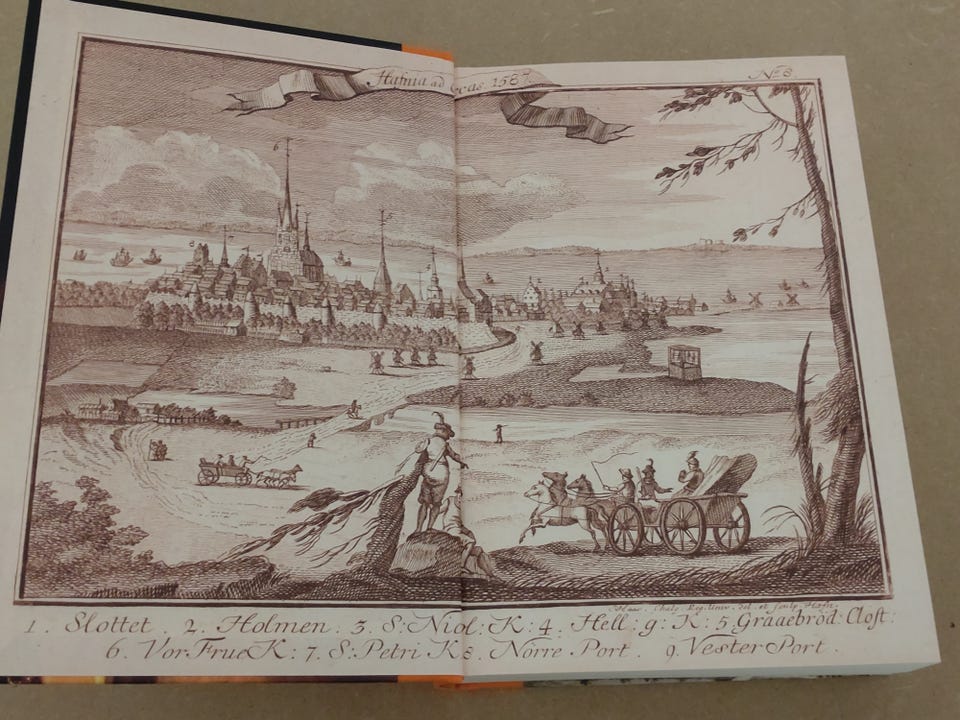 Hafnia ad Occas. 1587
No 8.
Haas. Chalc. Reg. Univ. del. et sculp. Hafn.
1. Slottet. 2. Holmen. 3. S: Niol: K: 4. Hell: g: K: 5. Graaebröd: Clost:
6. Vor Frue K: 7. S: Petri K 8. Nörre Port. 9. Vester Port.